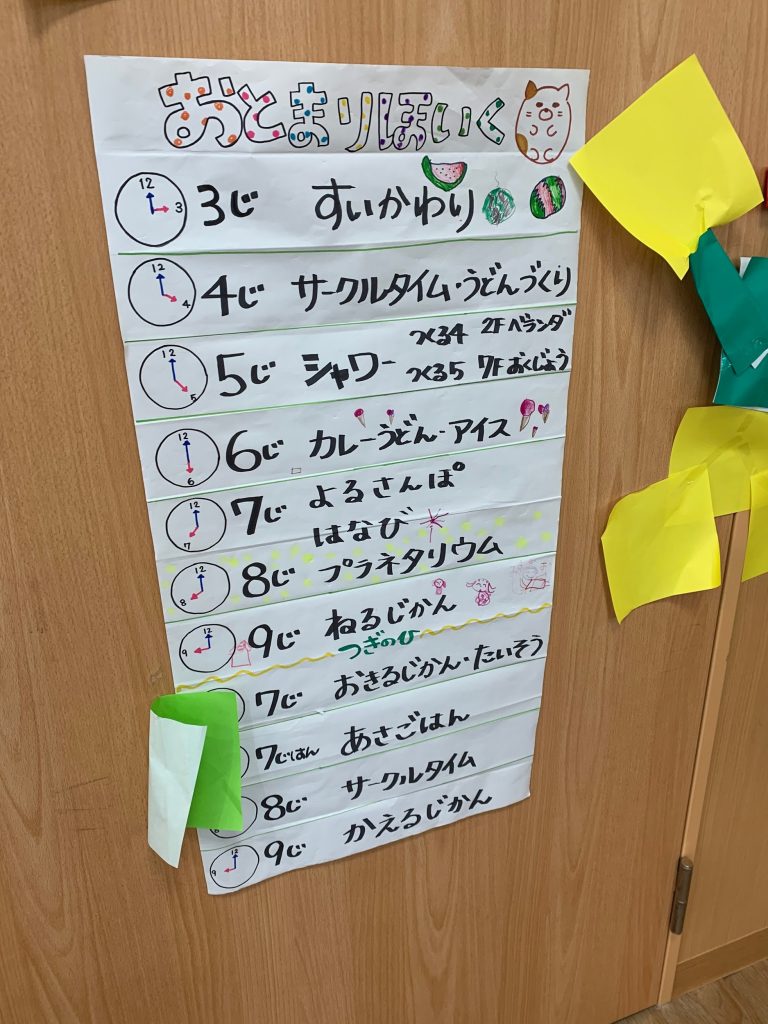 おとまりほいく
12 3 3じ すいかわり
12 4 4じ サークルタイム・うどんづくり
12 5 5じ シャワー つくる4 2Fベランダ
つくる5 7Fおくじょう
12 6 6じ カレーうどん・アイス
12 7 7じ よるさんぽ
はなび
12 8 8じ プラネタリウム
12 9 9じ ねるじかん
つぎのひ
7じ おきるじかん・たいそう
7じはん あさごはん
8じ サークルタイム
12 9 9じ かえるじかん